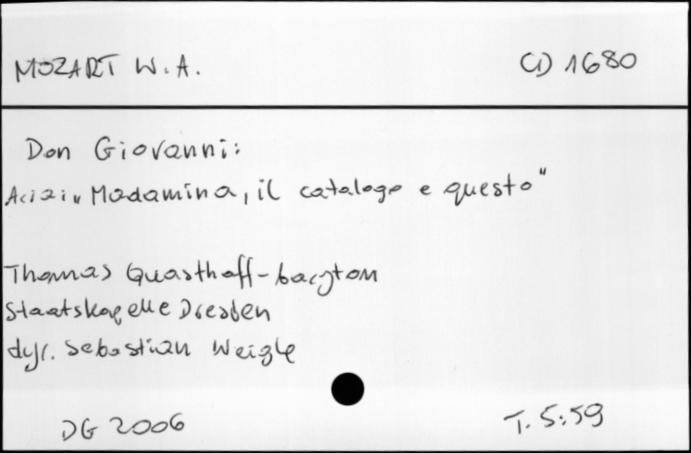 MOZART W.A. CD 1680
Don Giovanni:
Aria „Madamina, il catalogo e questo"
Thomas Quasthoff - baryton
Staatskapelle Dresden
dyr. Sebastian Weigle
DG 2006 T. 5:59